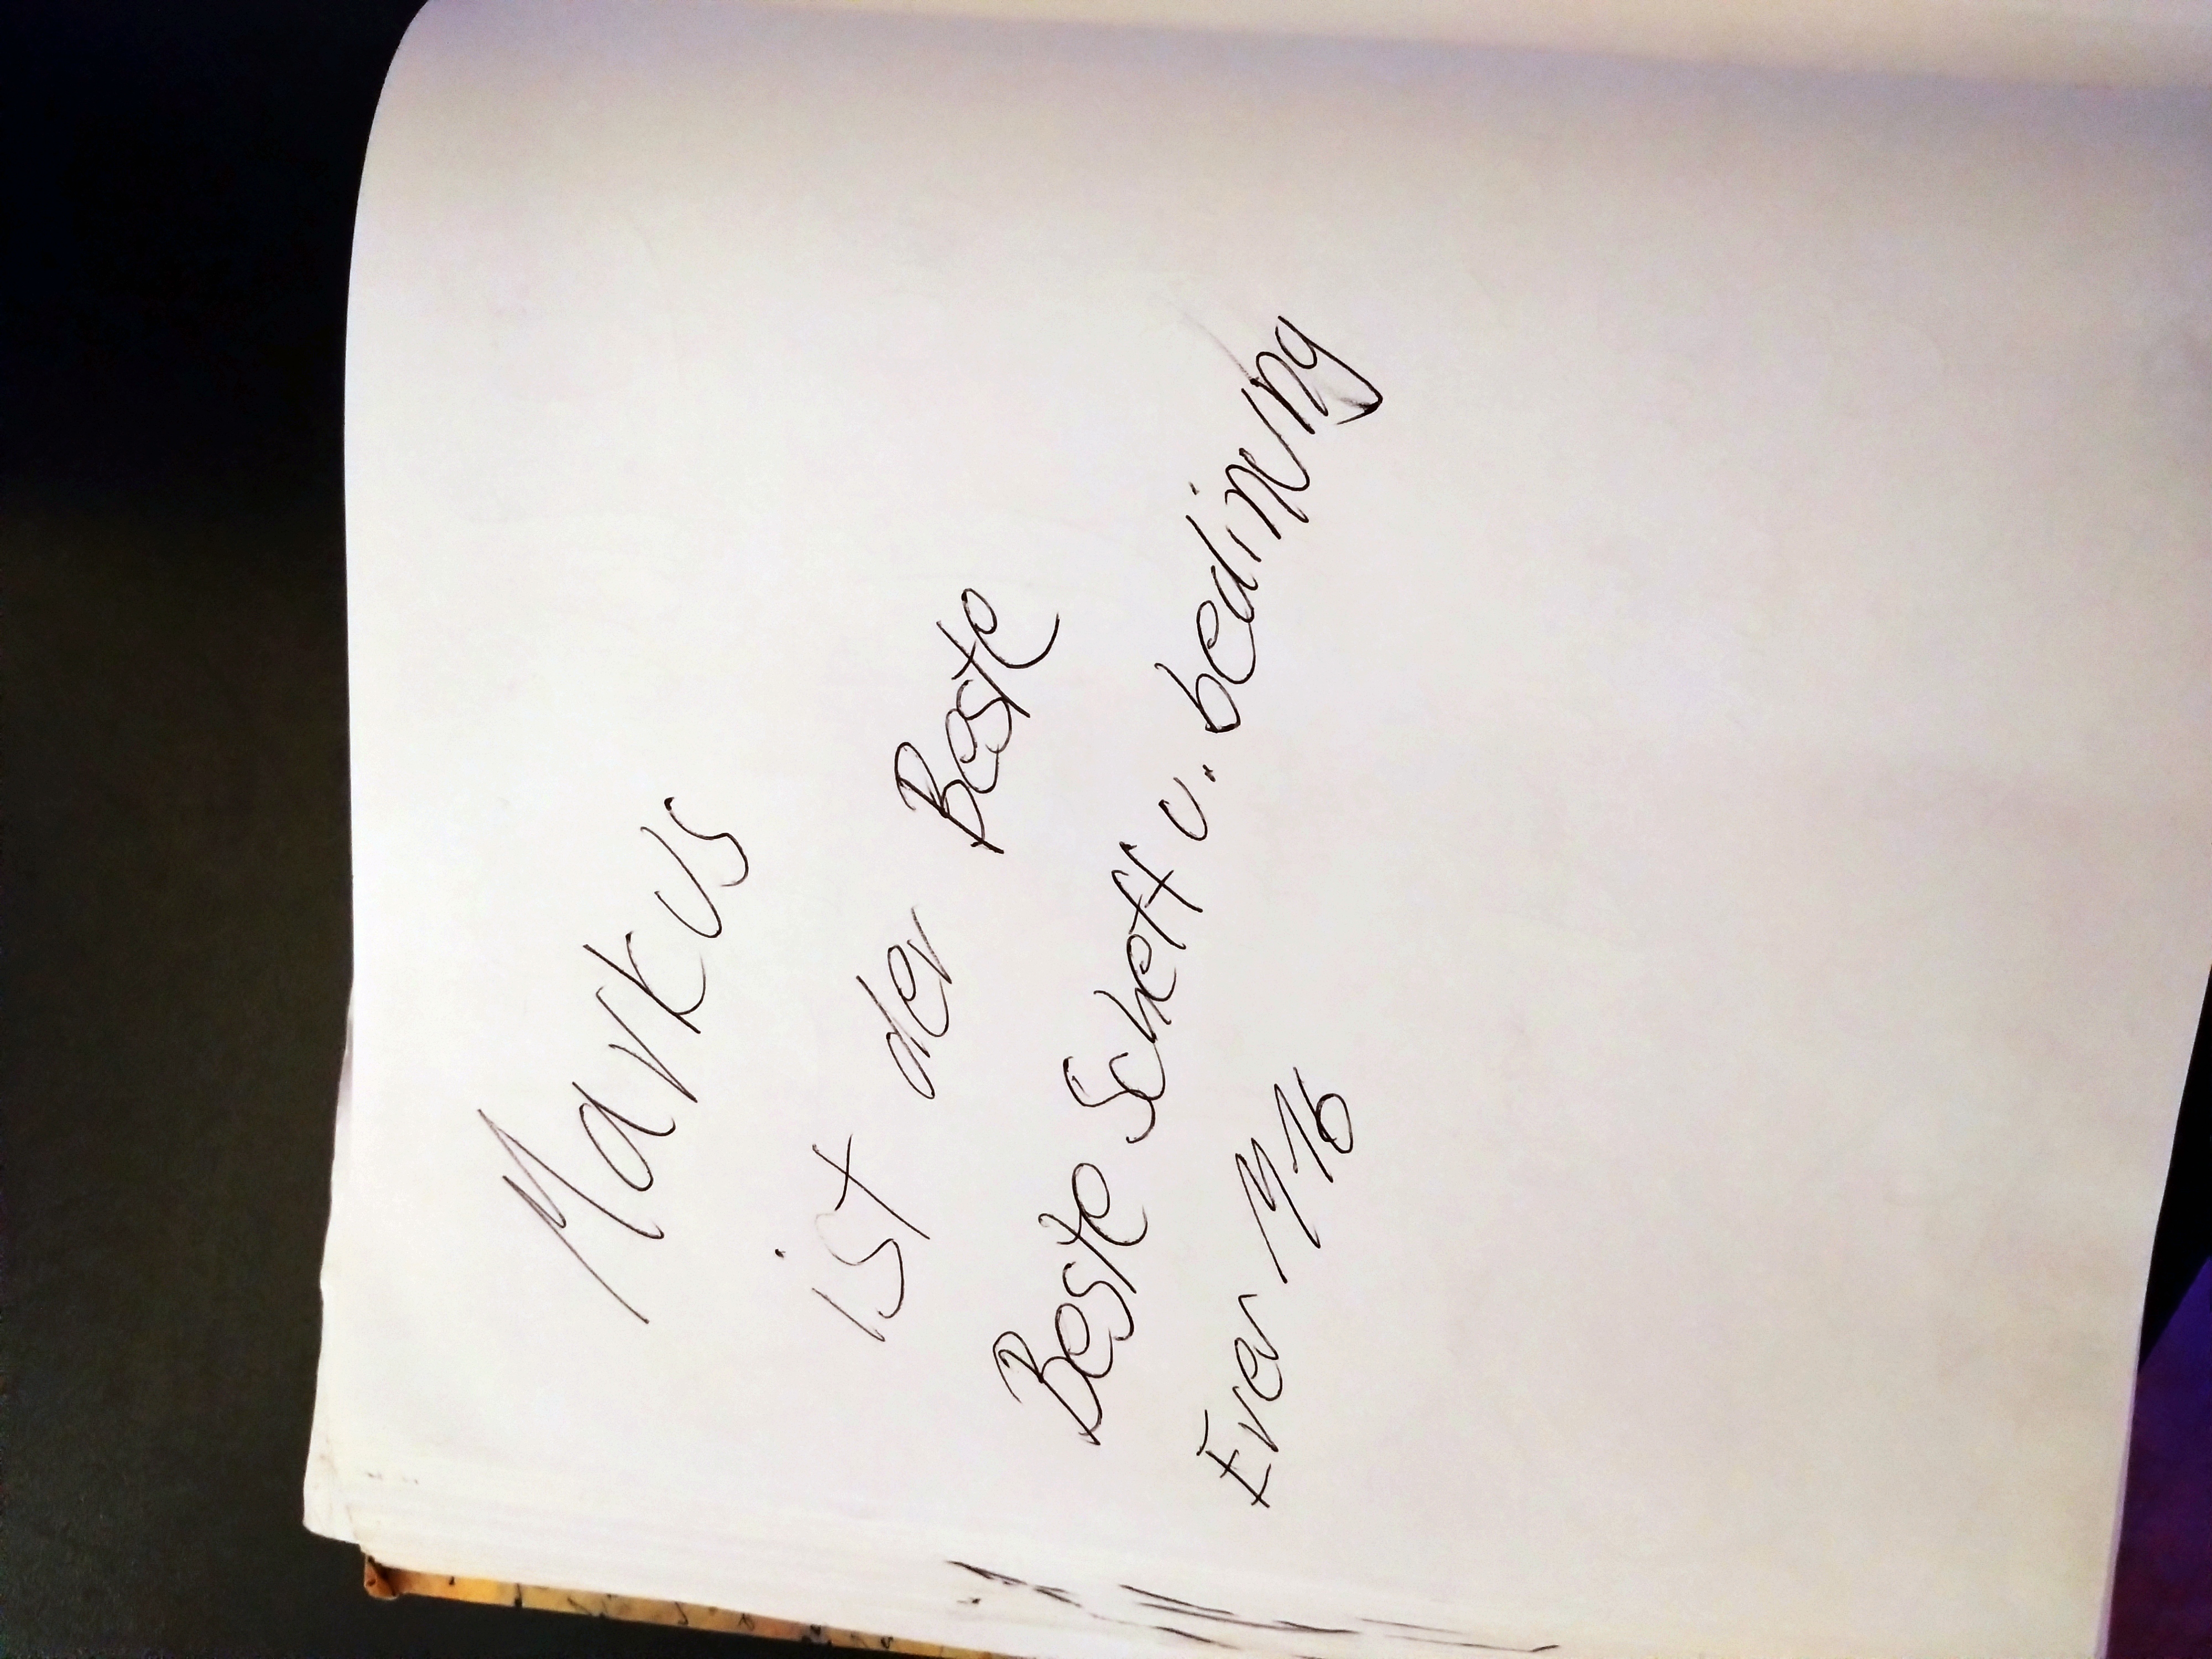 Markus
ist der Beste
Beste Scheff u. bedinung
Ever M16